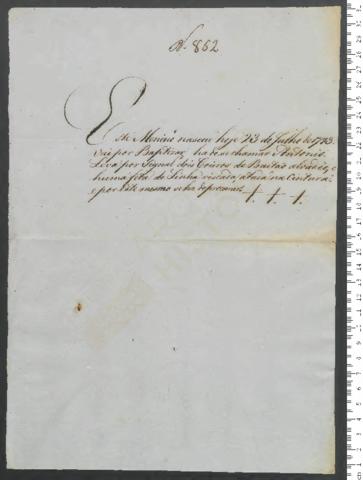 N. 852
Este Menino nasceu hoje 23 de Julho de 1783.
Vai por Baptizar ha de se chamar Antonio
Leva por Signal dois Cueiros de Baetão
huma fita de Linha riscada, atada na Cintura,
e por este mesmo se ha de procurar